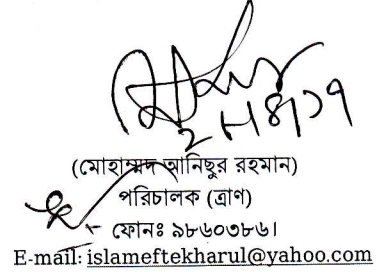 (মোহাম্মদ আনিছুর রহমান)
পরিচালক (ত্রাণ)
ফোনঃ ৯৮৬০৩৮৬।
E-mail: islameftekharul@yahoo.com